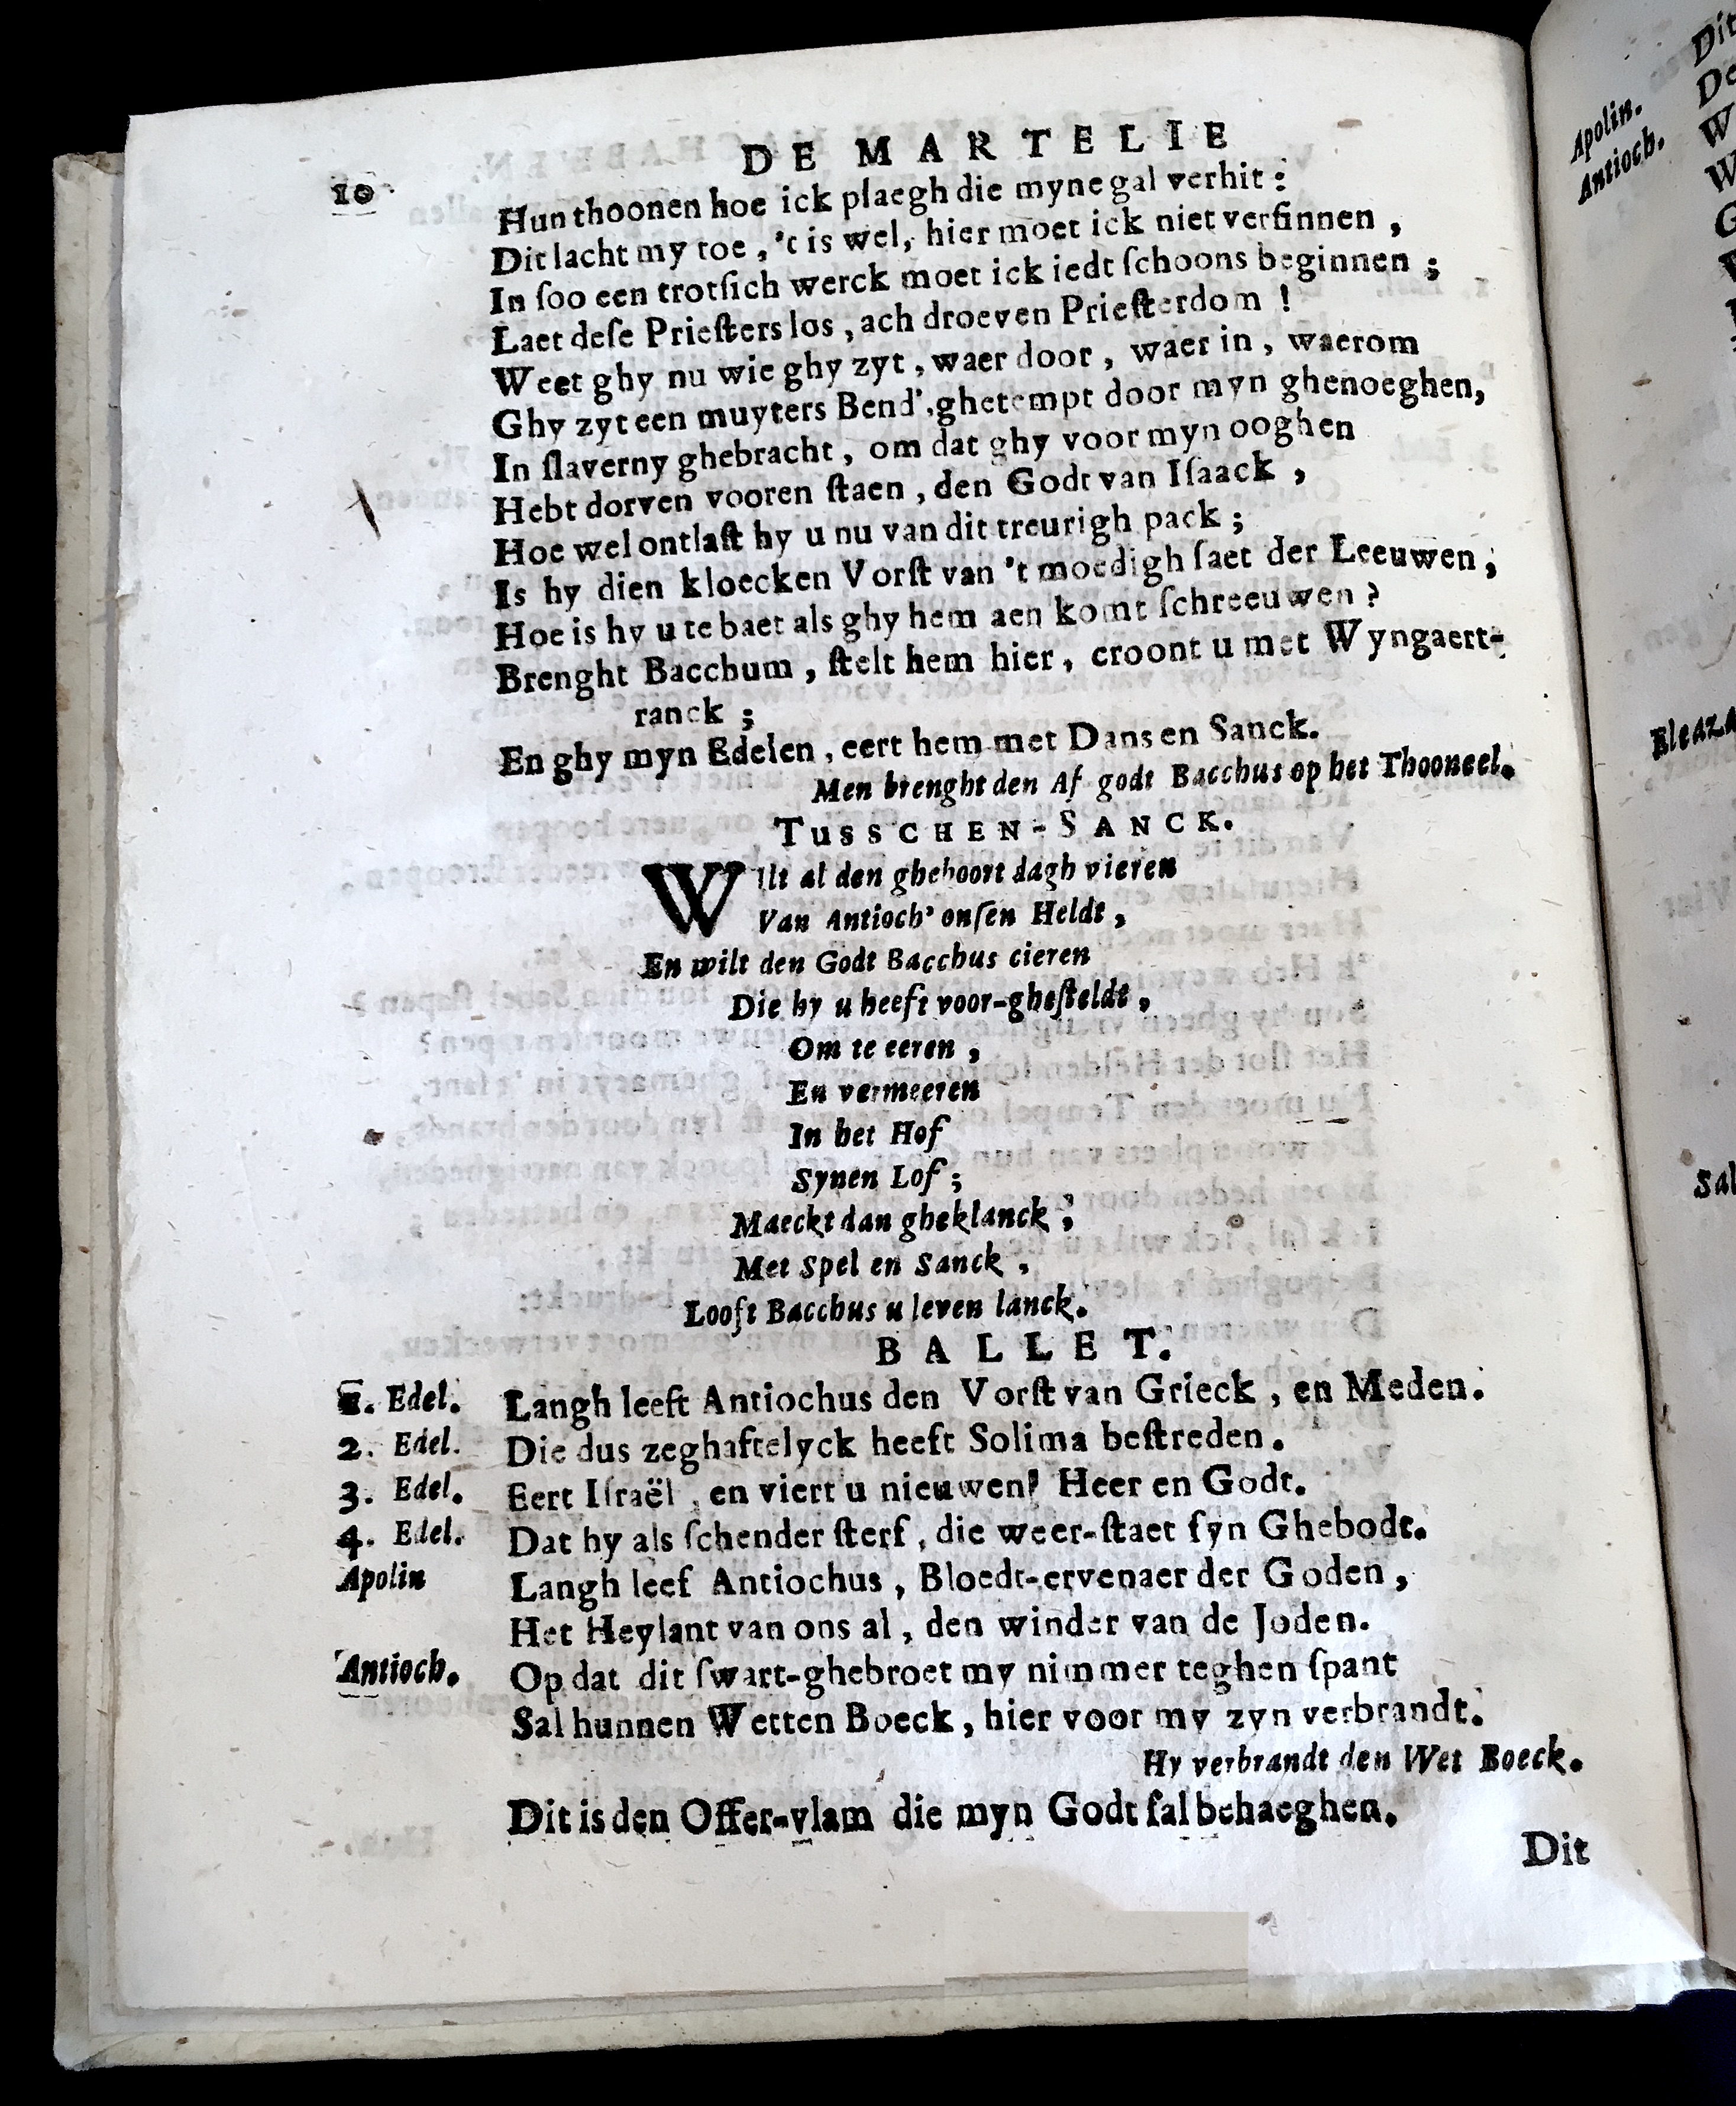 DE MARTELIE
10
Hun thoonen hoe ick plaegh die myne gal verhit:
Dit lacht my toe, 't is wel, hier moet ick niet versinnen,
In ſoo een trotſich werck moet ick iedt ſchoons beginnen;
Laet deſe Prieſters los, ach droeven Prieſterdom!
Weet ghy nu wie ghy zyt, waer door, waer in, waerom
Ghy zyt een muyters Bend', ghetempt door myn ghenoeghen,
In ſlaverny ghebracht, om dat ghy voor myn ooghen
Hebt dorven vooren ſtaen, den Godt van Iſaack,
Hoe wel ontlaſt hy u nu van dit treurigh pack;
Is hy dien kloecken Vorſt van 't moedigh ſaet der Leeuwen;
Hoe is hy u te baet als ghy hem aen komt ſchreeuwen?
Brenght Bacchum, ſtelt hem hier, croont u met Wyngaert-
ranck;
En ghy myn Edelen, eert hem met Dans en Sanck.
Men brenght den Af godt Bacchus op het Thooneel.
TUSSCHEN-SANCK.
WIlt al den gheboort dagh vieren
Van Antioch' onſen Heldt,
En wilt den Godt Bacchus cieren
Die hy u heeft voor-gheſteldt,
Om te eeren,
En vermeeren
In het Hof
Synen Lof;
Maeckt dan gheklanck;
Met Spel en Sanck,
Looft Bacchus u leven lanck.
BALLET.
1. Edel. Langh leeft Antiochus den Vorſt van Grieck, en Meden.
2. Edel. Die dus zeghaftelyck heeft Solima beſtreden.
3. Edel. Eert Iſraël, en viert u nieuwen Heer en Godt.
4. Edel. Dat hy als ſchender ſterf, die weer-ſtaet ſyn Ghebodt.
Apolin Langh leef Antiochus, Bloedt-ervenaer der Goden,
Het Heylant van ons al, den winder van de Joden.
Antioch. Op dat dit ſwart-ghebroet my nimmer teghen ſpant
Sal hunnen Wetten Boeck, hier voor my zyn verbrandt.
Hy verbrandt den Wet Boeck.
Dit is den Offer-vlam die myn Godt ſal behaeghen.
Dit
Apolin.
Antioch.